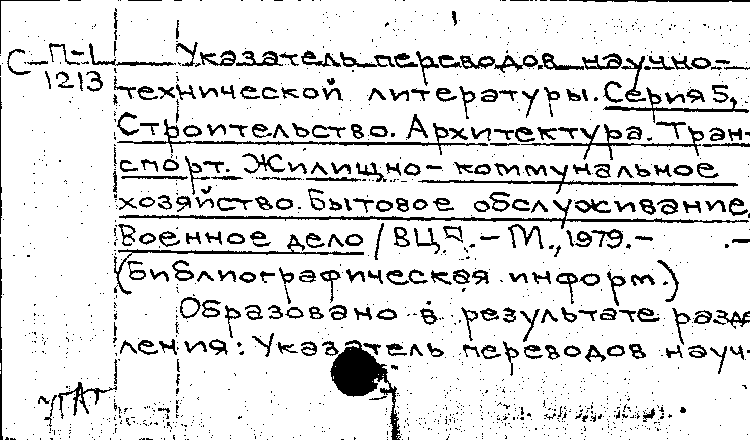 С П-1
1213
Указатель переводов научно-
технической литературы. Серия 5,
Строительство. Архитектура. Тран-
спорт. Жилищно-коммунальное
хозяйство. Бытовое обслуживание
Военное дело / ВЦП. - М., 1979. - . -
(Библиографическая информ.)
Образовано в результате разде
ления: Указатель переводов науч-